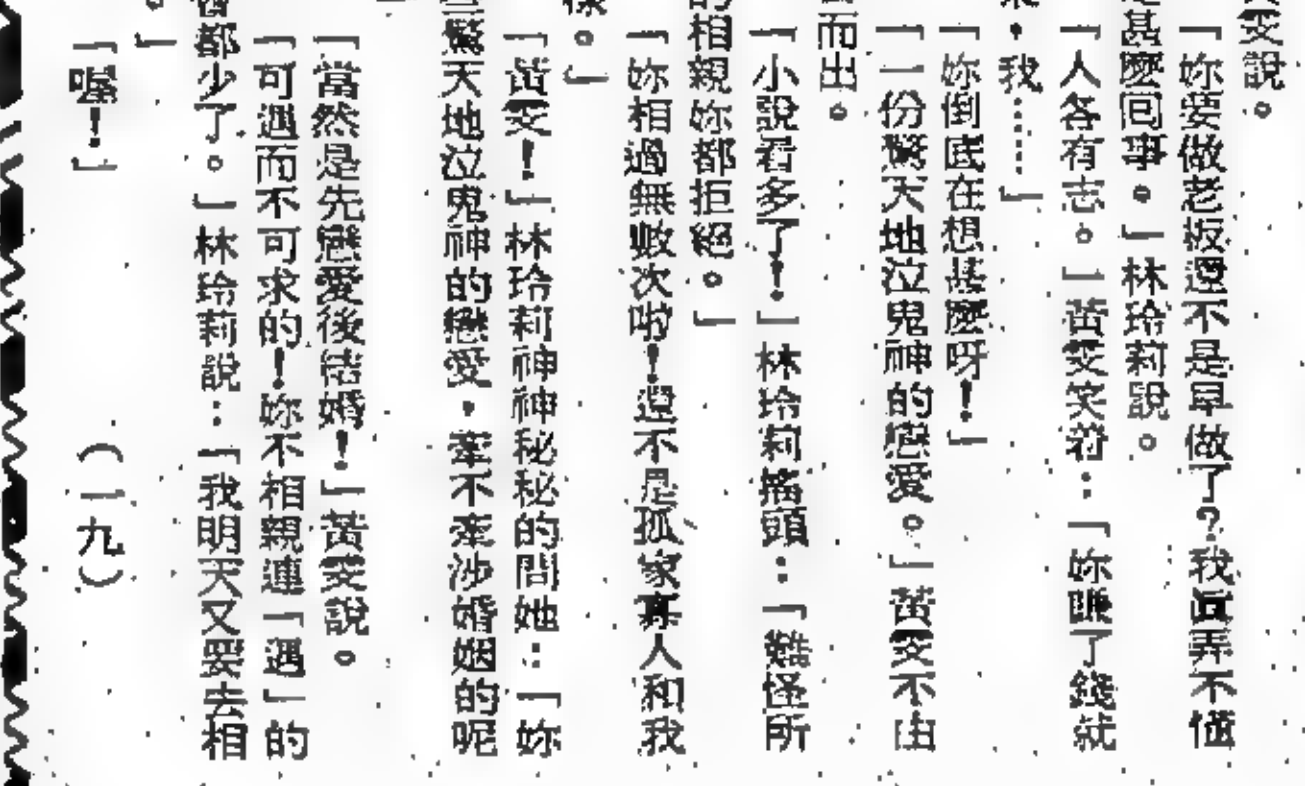 雯說。
「妳要做老板還不是早做了?我眞弄不懂
是甚麼回事。」林玲莉說。
「人各有志。」黃雯笑着:「妳賺了錢就
,我……」
「妳倒底在想甚麼呀!」
「一份驚天地泣鬼神的戀愛。」黃雯不由
而出。
「小說看多了!」林玲莉搖頭:「難怪所
的相親妳都拒絕。」
「妳相過無數次啦!還不是孤家寡人和我
樣。」
「黃雯!」林玲莉神神秘秘的問她:「妳
驚天地泣鬼神的戀愛,牽不牽涉婚姻的呢
「當然是先戀愛後結婚!」黃雯說。
「可遇而不可求的!妳不相親連「遇」的
會都少了。」林玲莉說:「我明天又要去相
。」
「喔!」 (一九)